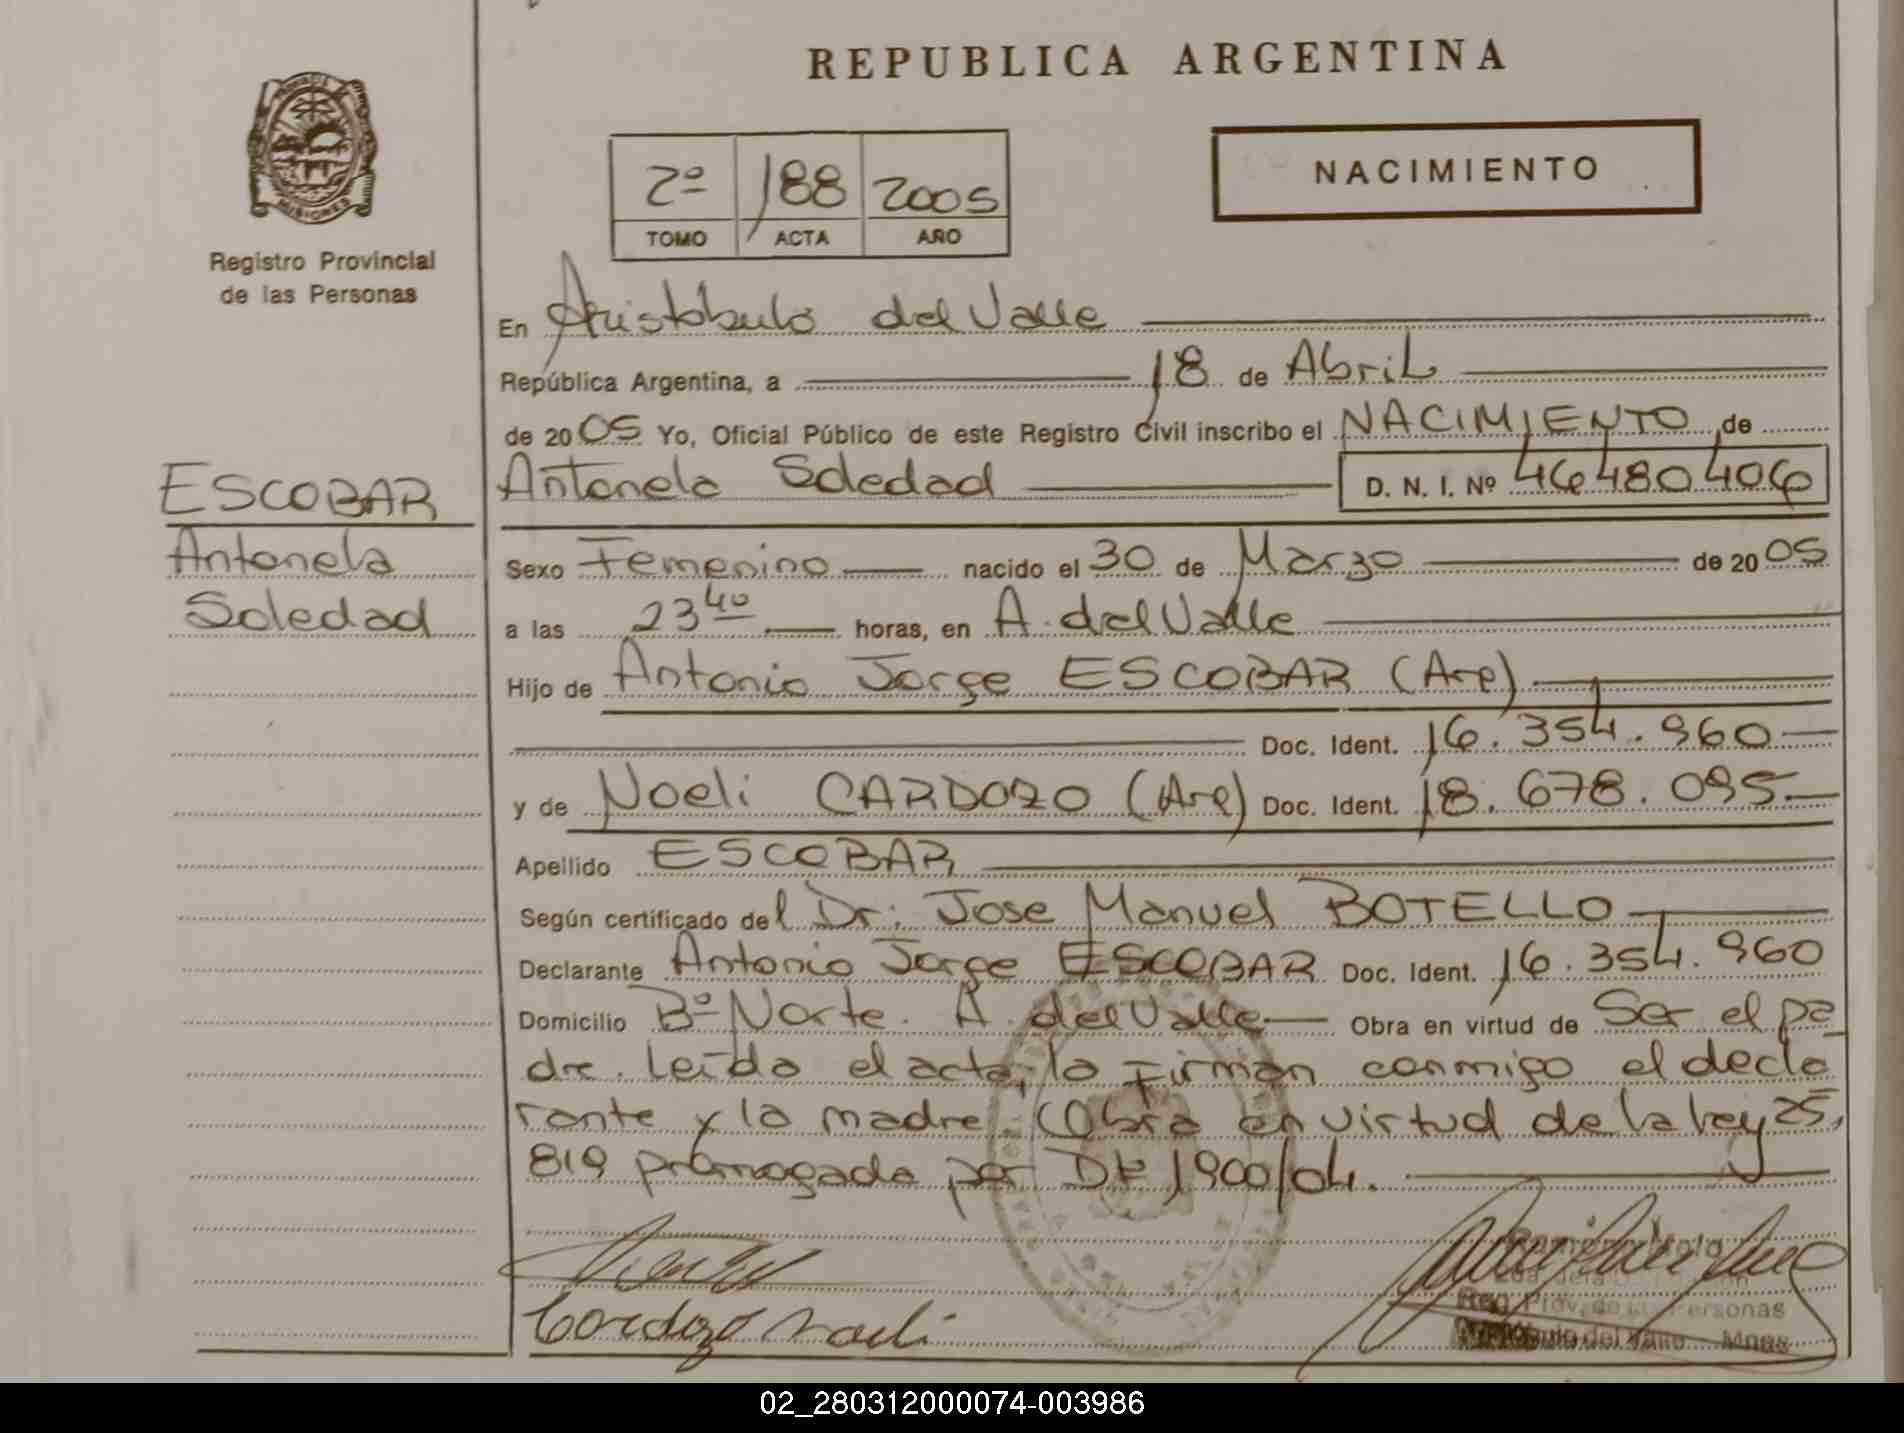 REPUBLICA ARGENTINA
PROVINCIA DE
MISIONES
Registro Provincial
de las Personas
2º 188 2005
TOMO ACTA AÑO
NACIMIENTO
En Aristóbulo del Valle
República Argentina, a 18 de Abril
de 2005 Yo, Oficial Público de este Registro Civil inscribo el NACIMIENTO de
ESCOBAR
Antonela
Soledad
Antonela Soledad D. N. I. Nº 46480406
Sexo Femenino nacido el 30 de Marzo de 2005
a las 23 40 horas, en A. del Valle
Hijo de Antonio Jorge ESCOBAR (Arg)
Doc. Ident. 16.354.960
y de Noeli CARDOZO (Arg) Doc. Ident. 18.678.095
Apellido ESCOBAR
Según certificado del Dr: Jose Manuel BOTELLO
Declarante Antonio Jorge ESCOBAR Doc. Ident. 16.354.960
Domicilio Bº Norte. A. del Valle Obra en virtud de Ser el pa
dre. Leída el acta, la Firman conmigo el decla
rante y la madre. Obra en virtud de la ley 25.
819 promogada por Dt 1900/04.
Cardozo Noeli
Reg. Prov. de las Personas
Aristóbulo del Valle - Mnes
02_280312000074-003986